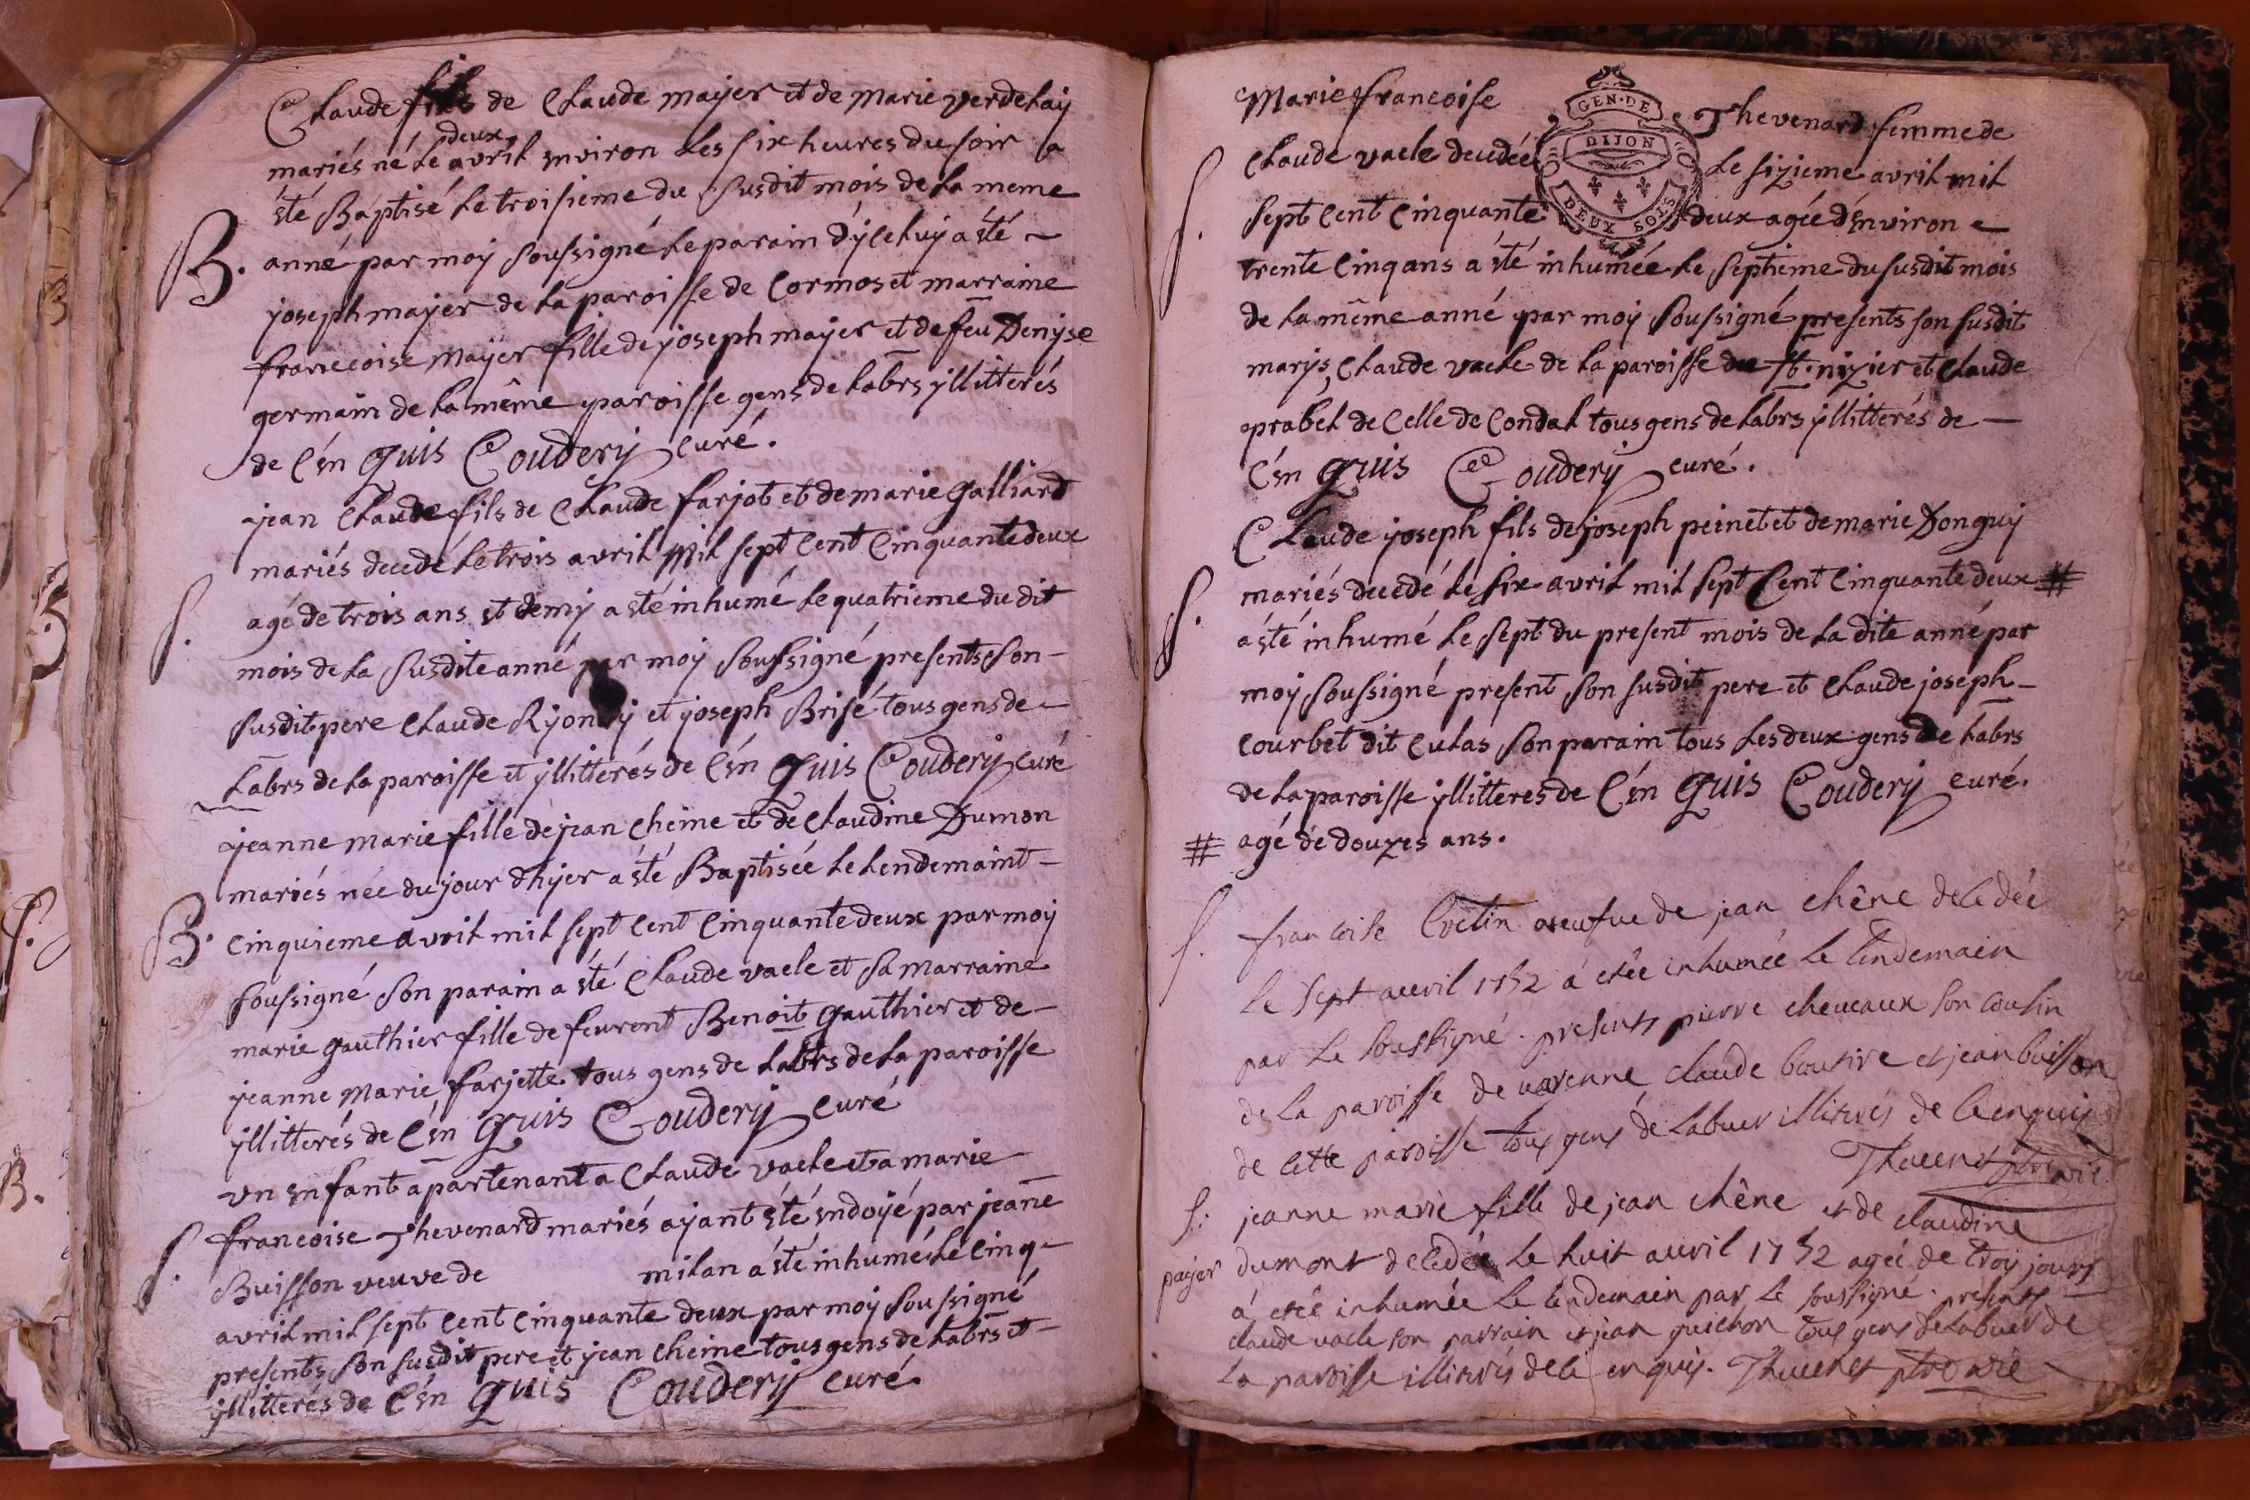 Claude fils de Claude mayer et de Marie verdelay
mariés né le deux avril environ les six heures du soir a
été Baptisé le troisieme du susdit mois de la meme
B. anné par moy soussigné le parain d'yceluy a été
joseph mayer de la paroisse de Cormos et marraine
francoise mayer fille de joseph mayer et de feu Denyse
germain de la même paroisse gens de labrs yllitterés
de C'én quis Coudery curé.
jean Claude fils de Claude farjot et de marie galliard
mariés decedé le trois avril mil sept Cent Cinquante deux
S. agé de trois ans et demy a été inhumé le quatrieme du dit
mois de la susdite anné par moy soussigné presents son
susdit pere Claude et joseph Brisé tous gens de
labrs de la paroisse et yllitterés de C'én quis Coudery curé
jeanne marie fille de jean cheine et de claudine Dumon
mariés née du jour d'hyer a été Baptisée le lendemaint
B. cinquieme avril mil sept Cent Cinquante deux par moy
soussigné son parain a été Claude vacle et sa marraine
marie gauthier fille de feurent Benoit gauthier et de
jeanne Marie farjette tous gens de labrs de la paroisse
yllitterés de C'én quis Coudery curé
un enfant apartenant a Claude vacle et a marie
francoise Thevenard mariés ayant été endoyé par jeane
S. Buisson veuve de milan a été inhumé le cinq
avril mil sept Cent Cinquante deux par moy soussigné
presents son susdit pere et jean cheine tous gens de labrs et
yllitterés de C'én quis Coudery curé.
Marie francoise Thevenard femme de
GEN. DE
DIJON
DEUX SOLS
S. Claude vacle decedée le sizieme avril mil
sept Cent Cinquante deux agée d'environ
trente Cinq ans a été inhumée le septieme du susdit mois
de la même anné par moy soussigné presents son susdit
marys, Claude vacle de la paroisse de st. nizier et Claude
prabel de Celle de Condal tous gens de labrs yllitterés de
C'én quis Coudery curé.
Claude joseph fils de joseph peinet et de marie Donguy
S. mariés decedé le six avril mil sept Cent Cinquante deux #
a été inhumé le sept du present mois de la dite anné par
moy soussigné present son susdit pere et Claude joseph
courbet dit culas son parain tous les deux gens de labrs
de la paroisse yllitteres de C'én quis Coudery curé.
# agé de douzes ans.
S. francoise Cretin veufue de jean chêne decedée
le sept auril 1752 a etée inhumée le lendemain
par le soussigné. presents pierre cheveaux son cousin
de la paroisse de varenne claude boutire et jean buisson
de cette paroisse tous gens de labeur illitrés de ce enquis
S. jeanne marie fille de jean chêne et de claudine
payer dumont decedée le huit auril 1752 ageé de troy jours
á etée inhumée le lendemain par le soussigné. presents
claude vacle son parrain et jean guichon tous gens de labeur de
la paroisse illitrés de ce enquis.